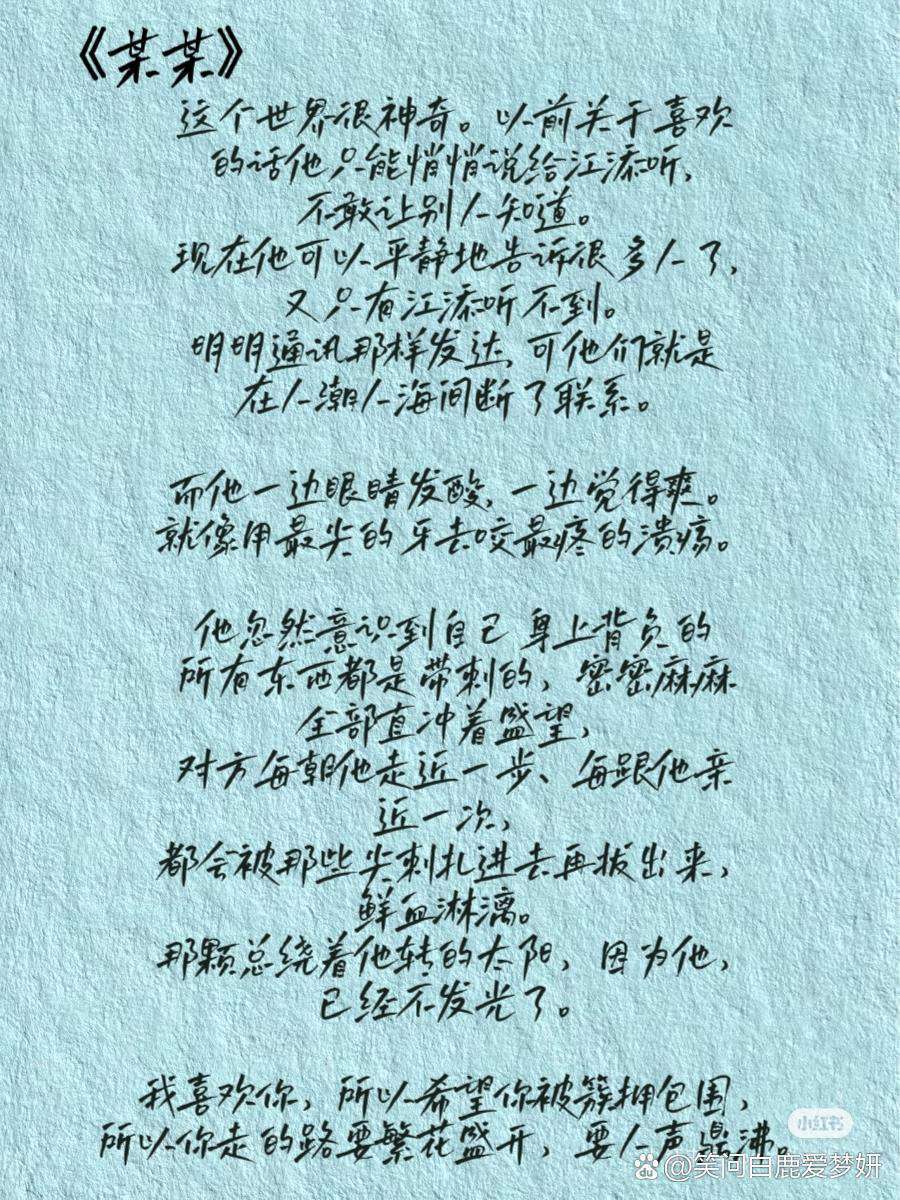 《某某》
这个世界很神奇。以前关于喜欢
的话他只能悄悄说给江添听,
不敢让别人知道。
现在他可以平静地告诉很多人了,
又只有江添听不到。
明明通讯那样发达,可他们就是
在人潮人海间断了联系。
而他一边眼睛发酸,一边觉得爽。
就像用最尖的牙去咬最疼的溃疡。
他忽然意识到自己身上背负的
所有东西都是带刺的,密密麻麻
全部直冲着盛望,
对方每朝他走近一步、每跟他亲
近一次,
都会被那些尖刺扎进去再拔出来,
鲜血淋漓。
那颗总绕着他转的太阳,因为他,
已经不发光了。
我喜欢你,所以希望你被簇拥包围,
所以你走的路要繁花盛开,要人声鼎沸。
小红书
@笑问白鹿爱梦妍